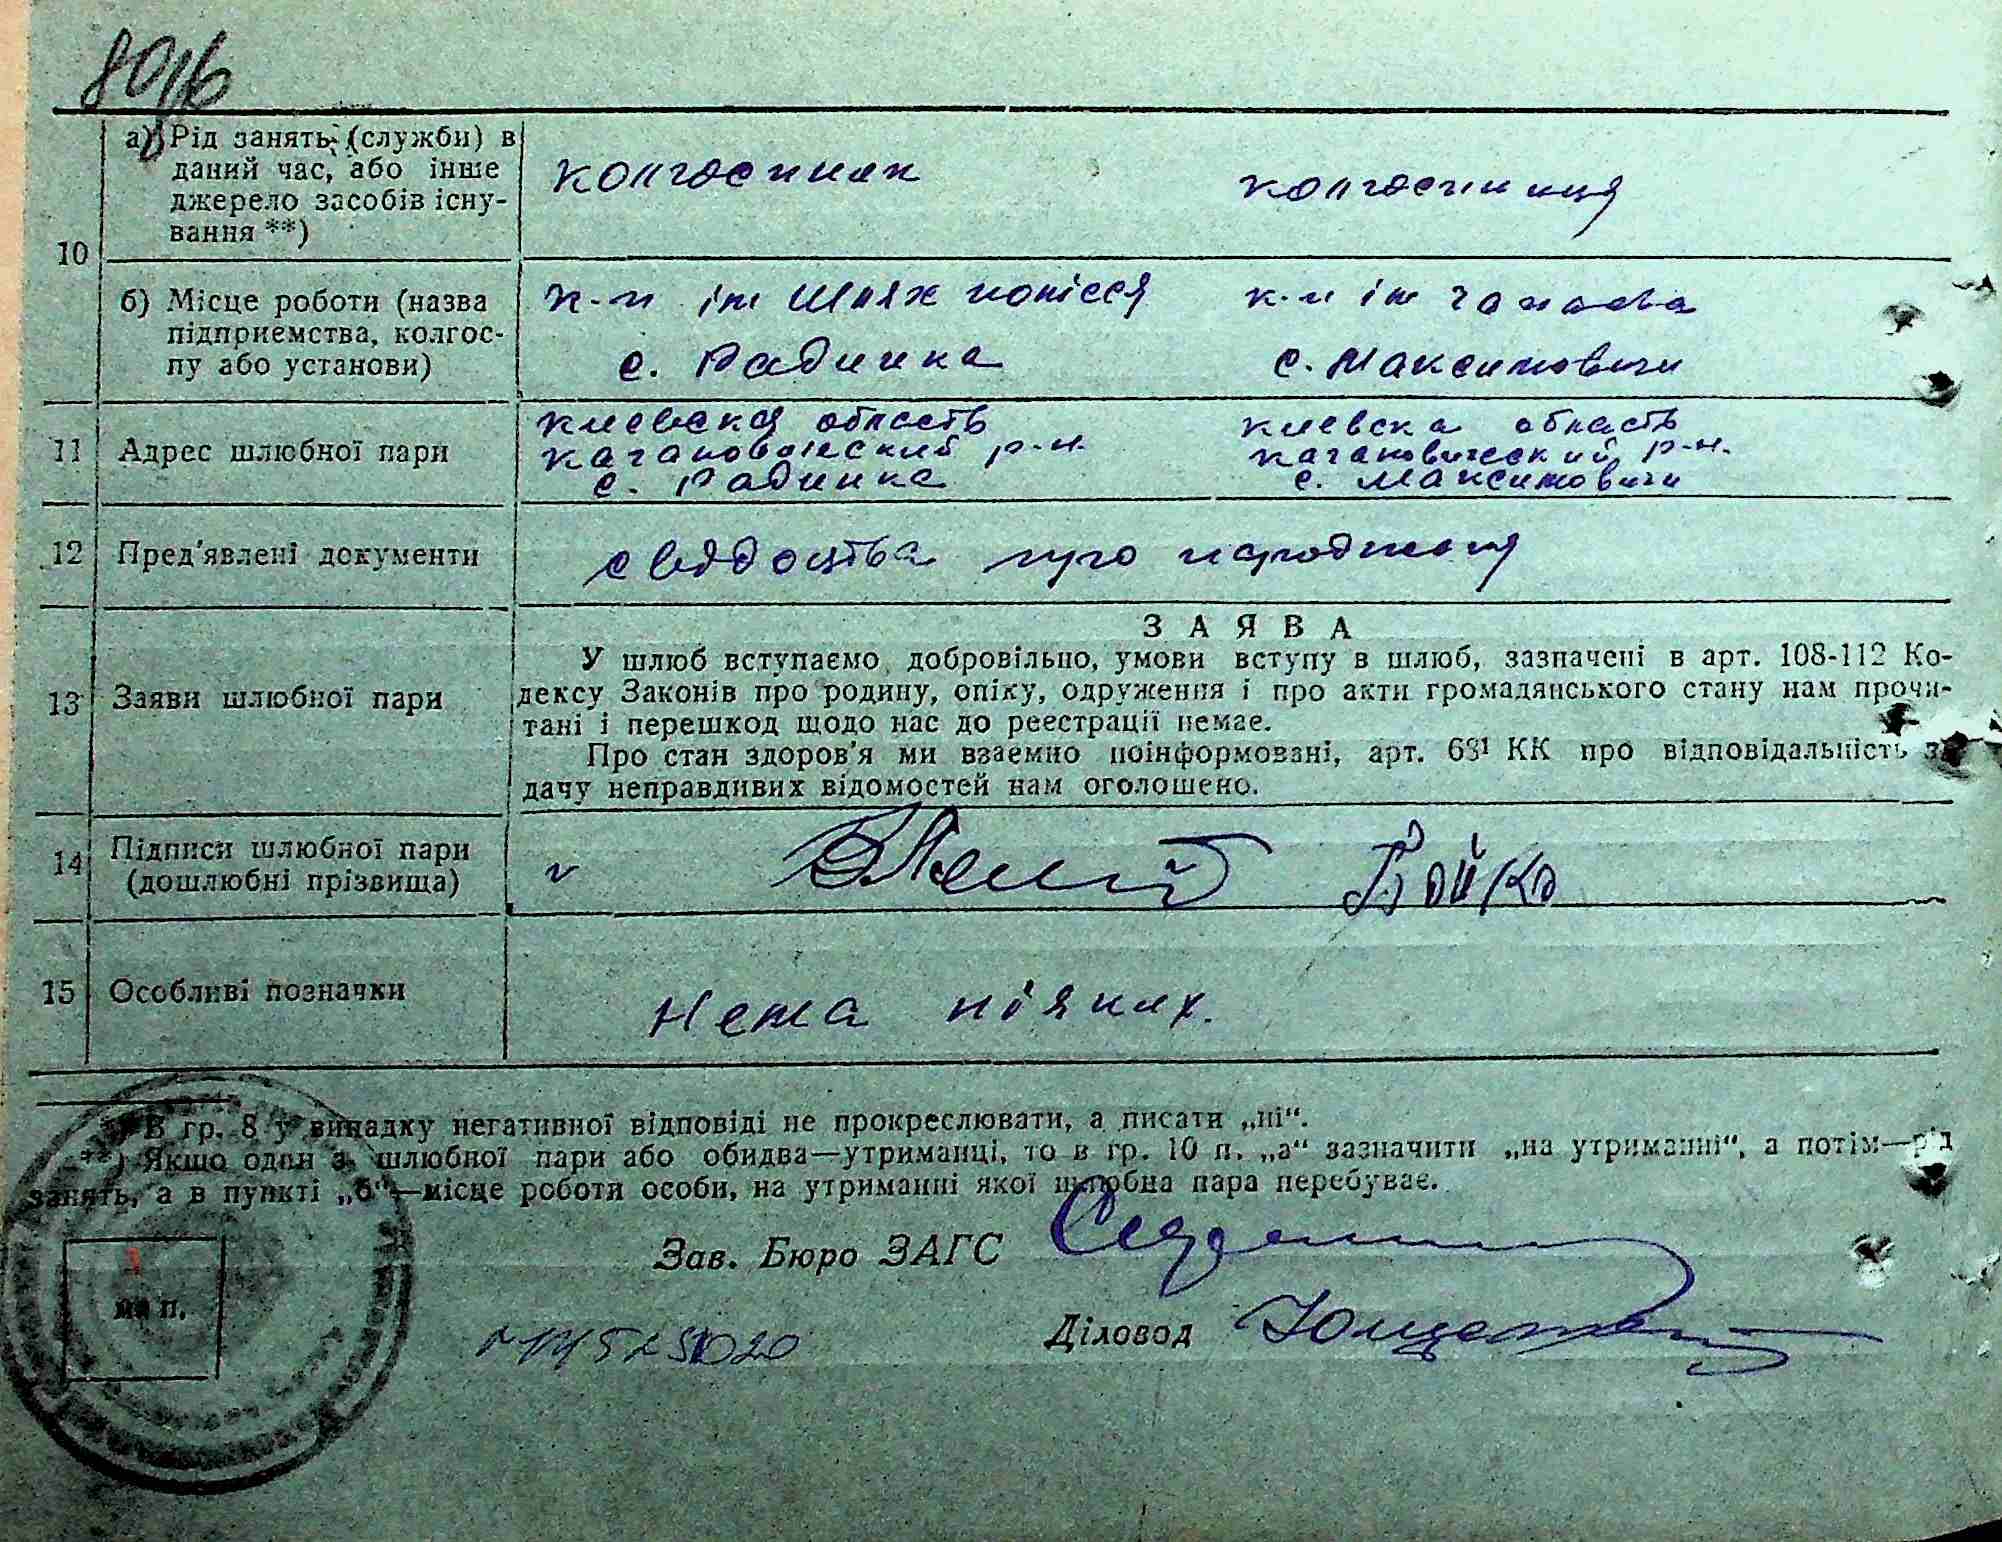 а) Рід занять (служби) в
даний час, або інше
джерело засобів існу-
вання **)
колгоспник
колгоспниця
10
б) Місце роботи (назва
підприємства, колгос-
пу або установи)
к-п ім Шлях полісся
с. Радинка
к-п ім чапаєва
с. Максимовичи
11
Адрес шлюбної пари
киевская область
кагановический р-н.
с. Радинка
киевска область
кагановический р-н.
с. Максимовичи
12
Пред'явлені документи
свідоцтва про народження
13
Заяви шлюбної пари
ЗАЯВА
У шлюб вступаємо добровільно, умови вступу в шлюб, зазначені в арт. 108-112 Ко-
дексу Законів про родину, опіку, одруження і про акти громадянського стану нам прочи-
тані і перешкод щодо нас до реестрації немає.
Про стан здоров'я ми взаємно поінформовані, арт. 68¹ КК про відповідальність за
дачу неправдивих відомостей нам оголошено.
14
Підписи шлюбної пари
(дошлюбні прізвища)
Бойко
15
Особливі позначки
Нема ніяких.
*) В гр. 8 у випадку негативної відповіді не прокреслювати, а писати „ні“.
**) Якщо один з шлюбної пари або обидва—утриманці, то в гр. 10 п. „а“ зазначити „на утриманні“, а потім—рід
занять, а в пункті „б“—місце роботи особи, на утриманні якої шлюбна пара перебуває.
Зав. Бюро ЗАГС
Діловод